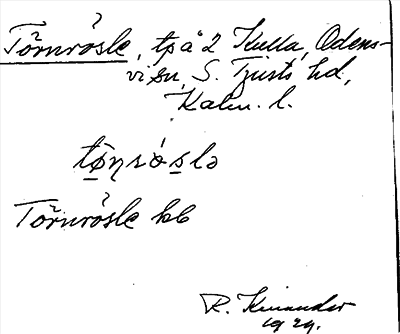 Törnrösle, tp å 2 Kulla, Odens-
vi sn, S. Tjusts hd,
Kalm. l.
tønrøslə
Törnrösle hb
R. Kinander
1929.